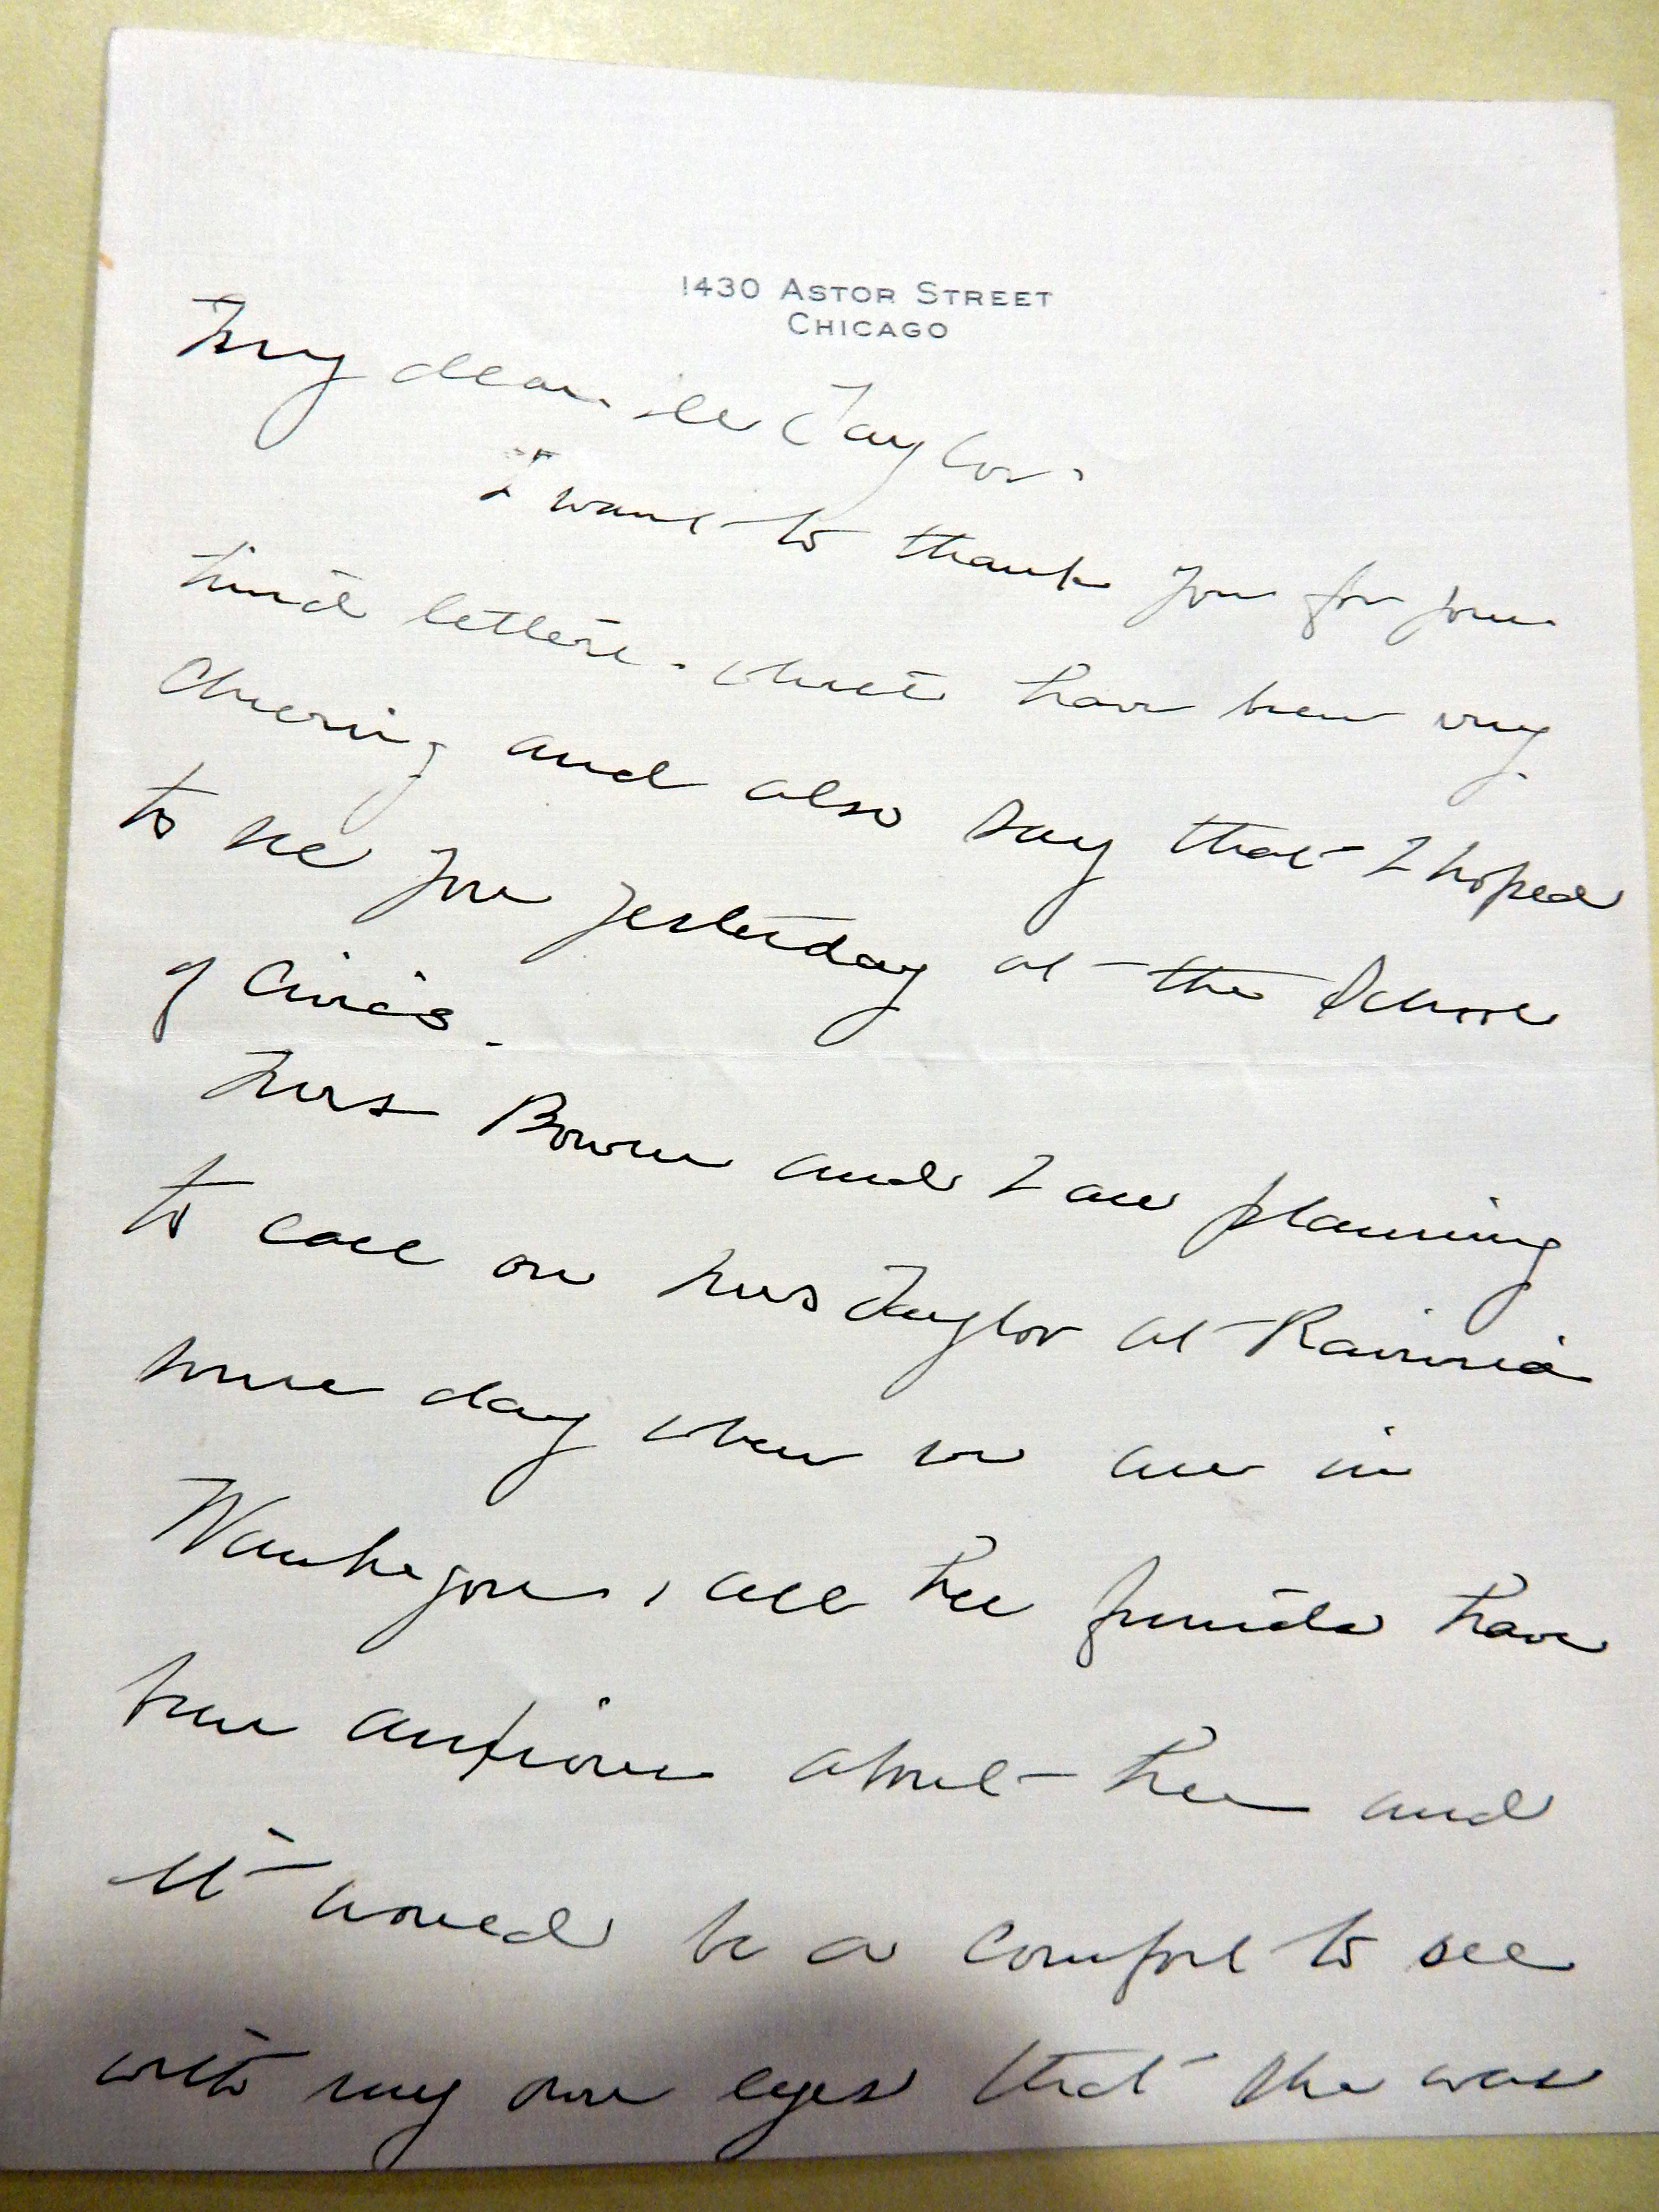 1430 ASTOR STREET
CHICAGO
My dear Mr Taylor
I want to thank you for your
kind letters. which have been very
cheering and also say that I hoped
to see you yesterday at the School
of Civics.
Mrs Bowen and I are planning
to call on Mrs Taylor at Ravinia
some day when we are in
Waukegan, all the friends have
been anxious about her and
it would be a comfort to see
with my own eyes that she was